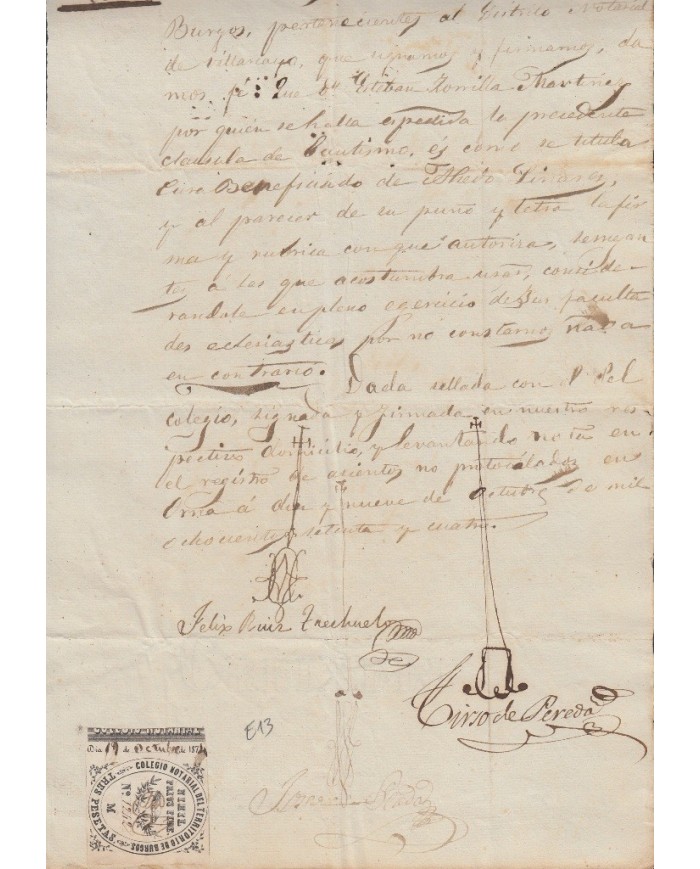 Burgos, pertenecientes al Distrito Notarial
de Villarcayo, que signamos y firmamos, da
mos fé: Que Dn Esteban Zorrilla Martinez
por quién se halla espedida la precedente
clausula de Bautismo, és como se titula
Cura Beneficiado de
y al parecer de su puño y letra la fir
ma y rubrica con que autoriza, semejan
tes á las que acostumbra usar, conside-
randole en pleno egercicio de sus faculta
des eclesiasticas por no constarnos nada
en contrario. Dada sellada con el del
colegio, signada y firmada en nuestro res-
pectivo domicilio, y levantando nota en
el registro de asientos no protocolados en
á diez y nueve de Octubre de mil
ochocientos setenta y cuatro.
Felix Ruiz
Tirso de Pereda
E13
COLEGIO NOTARIAL
Dia 19 de Octubre de 187
COLEGIO NOTARIAL DEL TERRITORIO DE BURGOS.
TRES PESETAS
M
No.
NIHIL
PRIUS FIDE